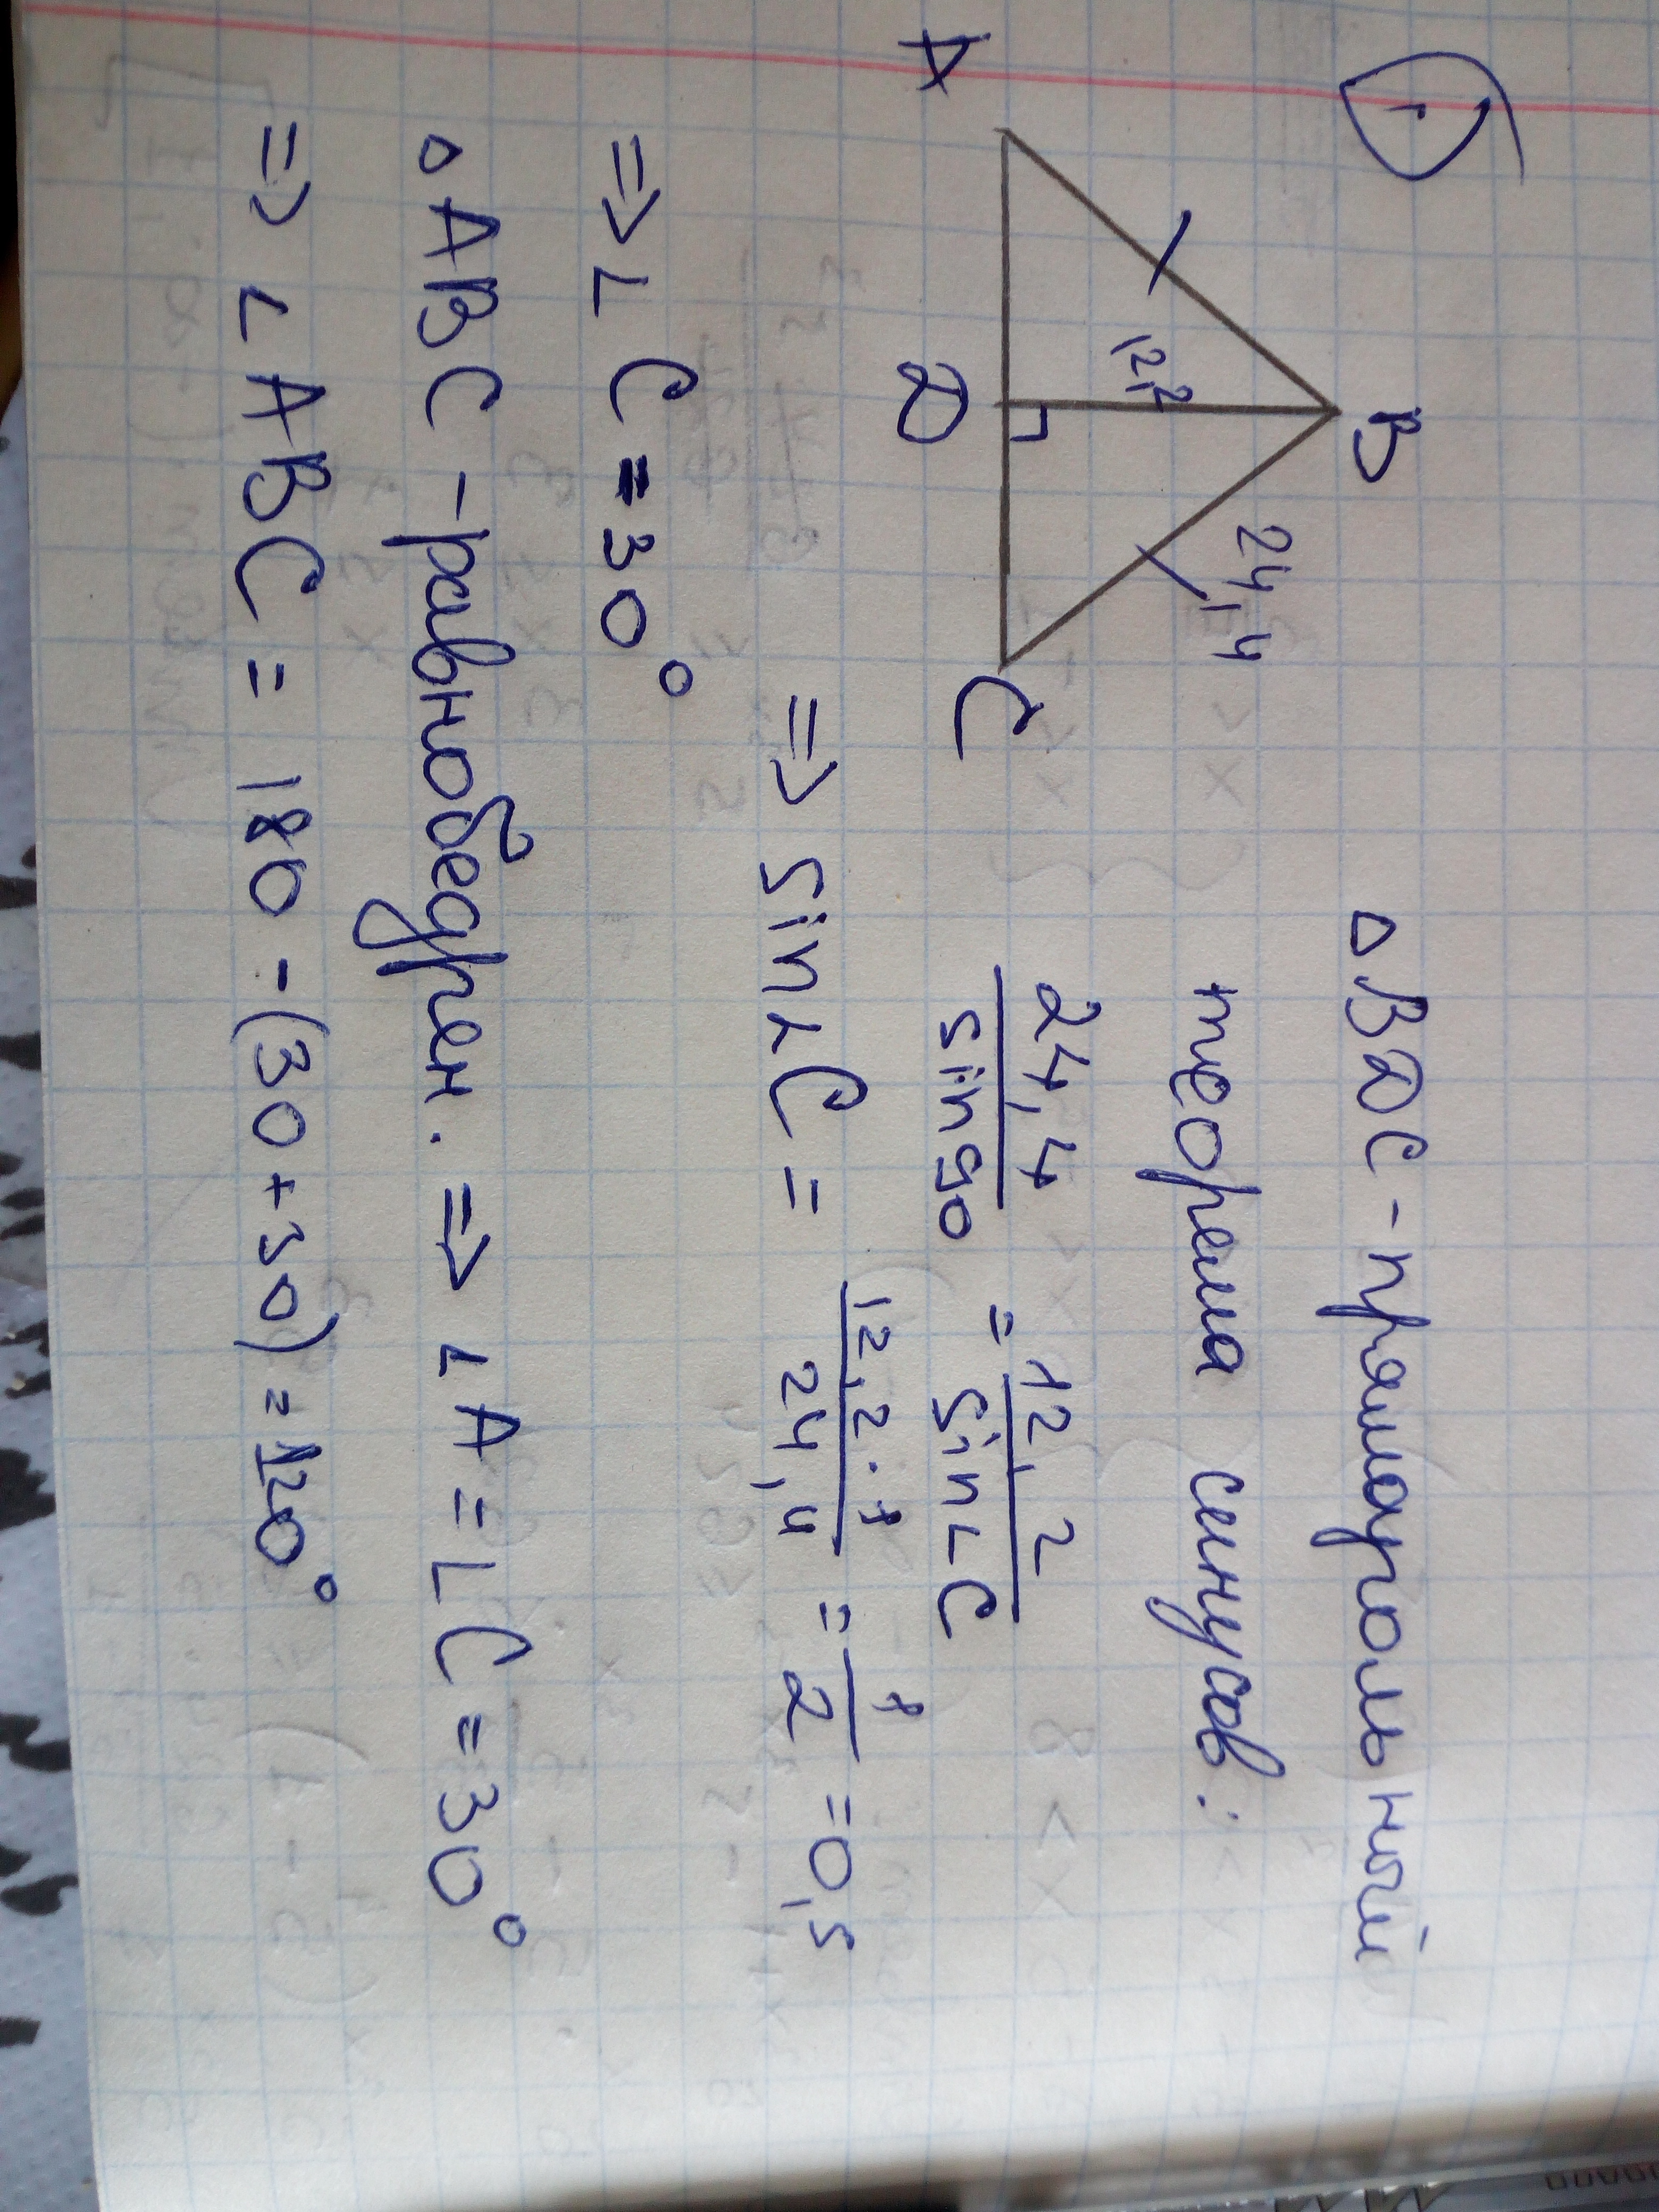 1
B
24,4
12,2
A
D
C
△BDC - прямоугольный
теорема синусов:
24,4/sin90 = 12,2/sin∠C
=> sin∠C = 12,2·1/24,4 = 1/2 = 0,5
=> ∠C = 30°
△ABC - равнобедрен. => ∠A = ∠C = 30°
=> ∠ABC = 180 - (30 + 30) = 120°